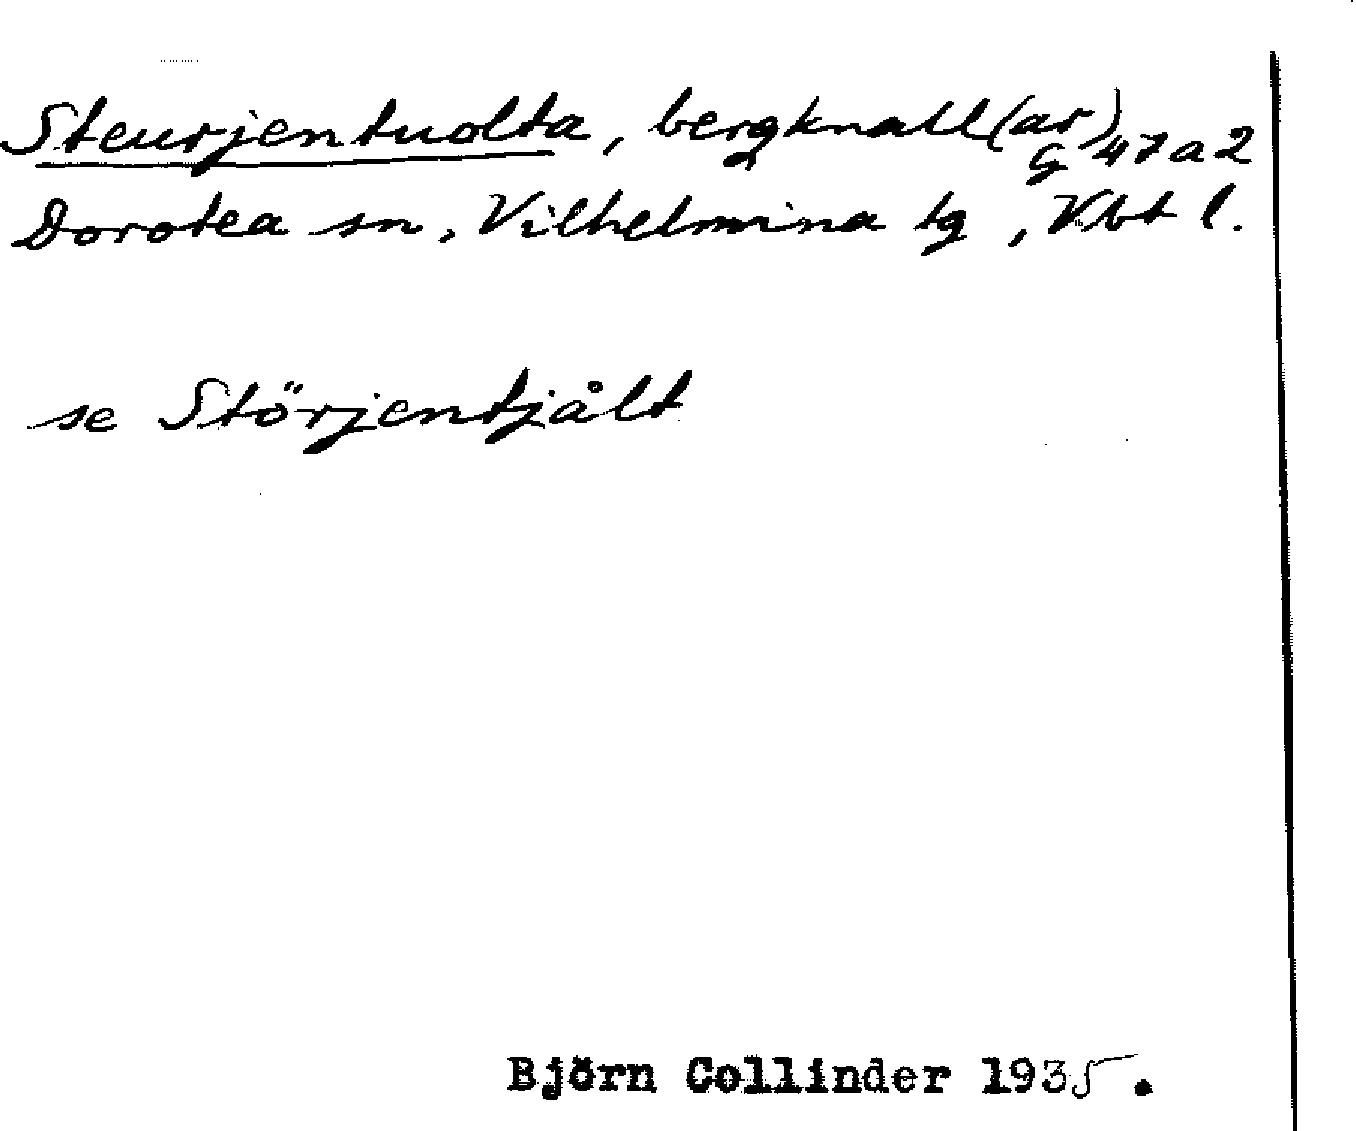 Steurjentuolta, bergknall(ar) G 47 a 2
Dorotea sn, Vilhelmina tg, Vbt l.
se Störjentjålt
Björn Collinder 1935.